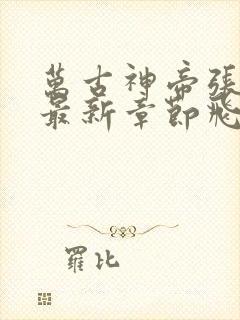 萬古神帝張
最新章節飛
羅比